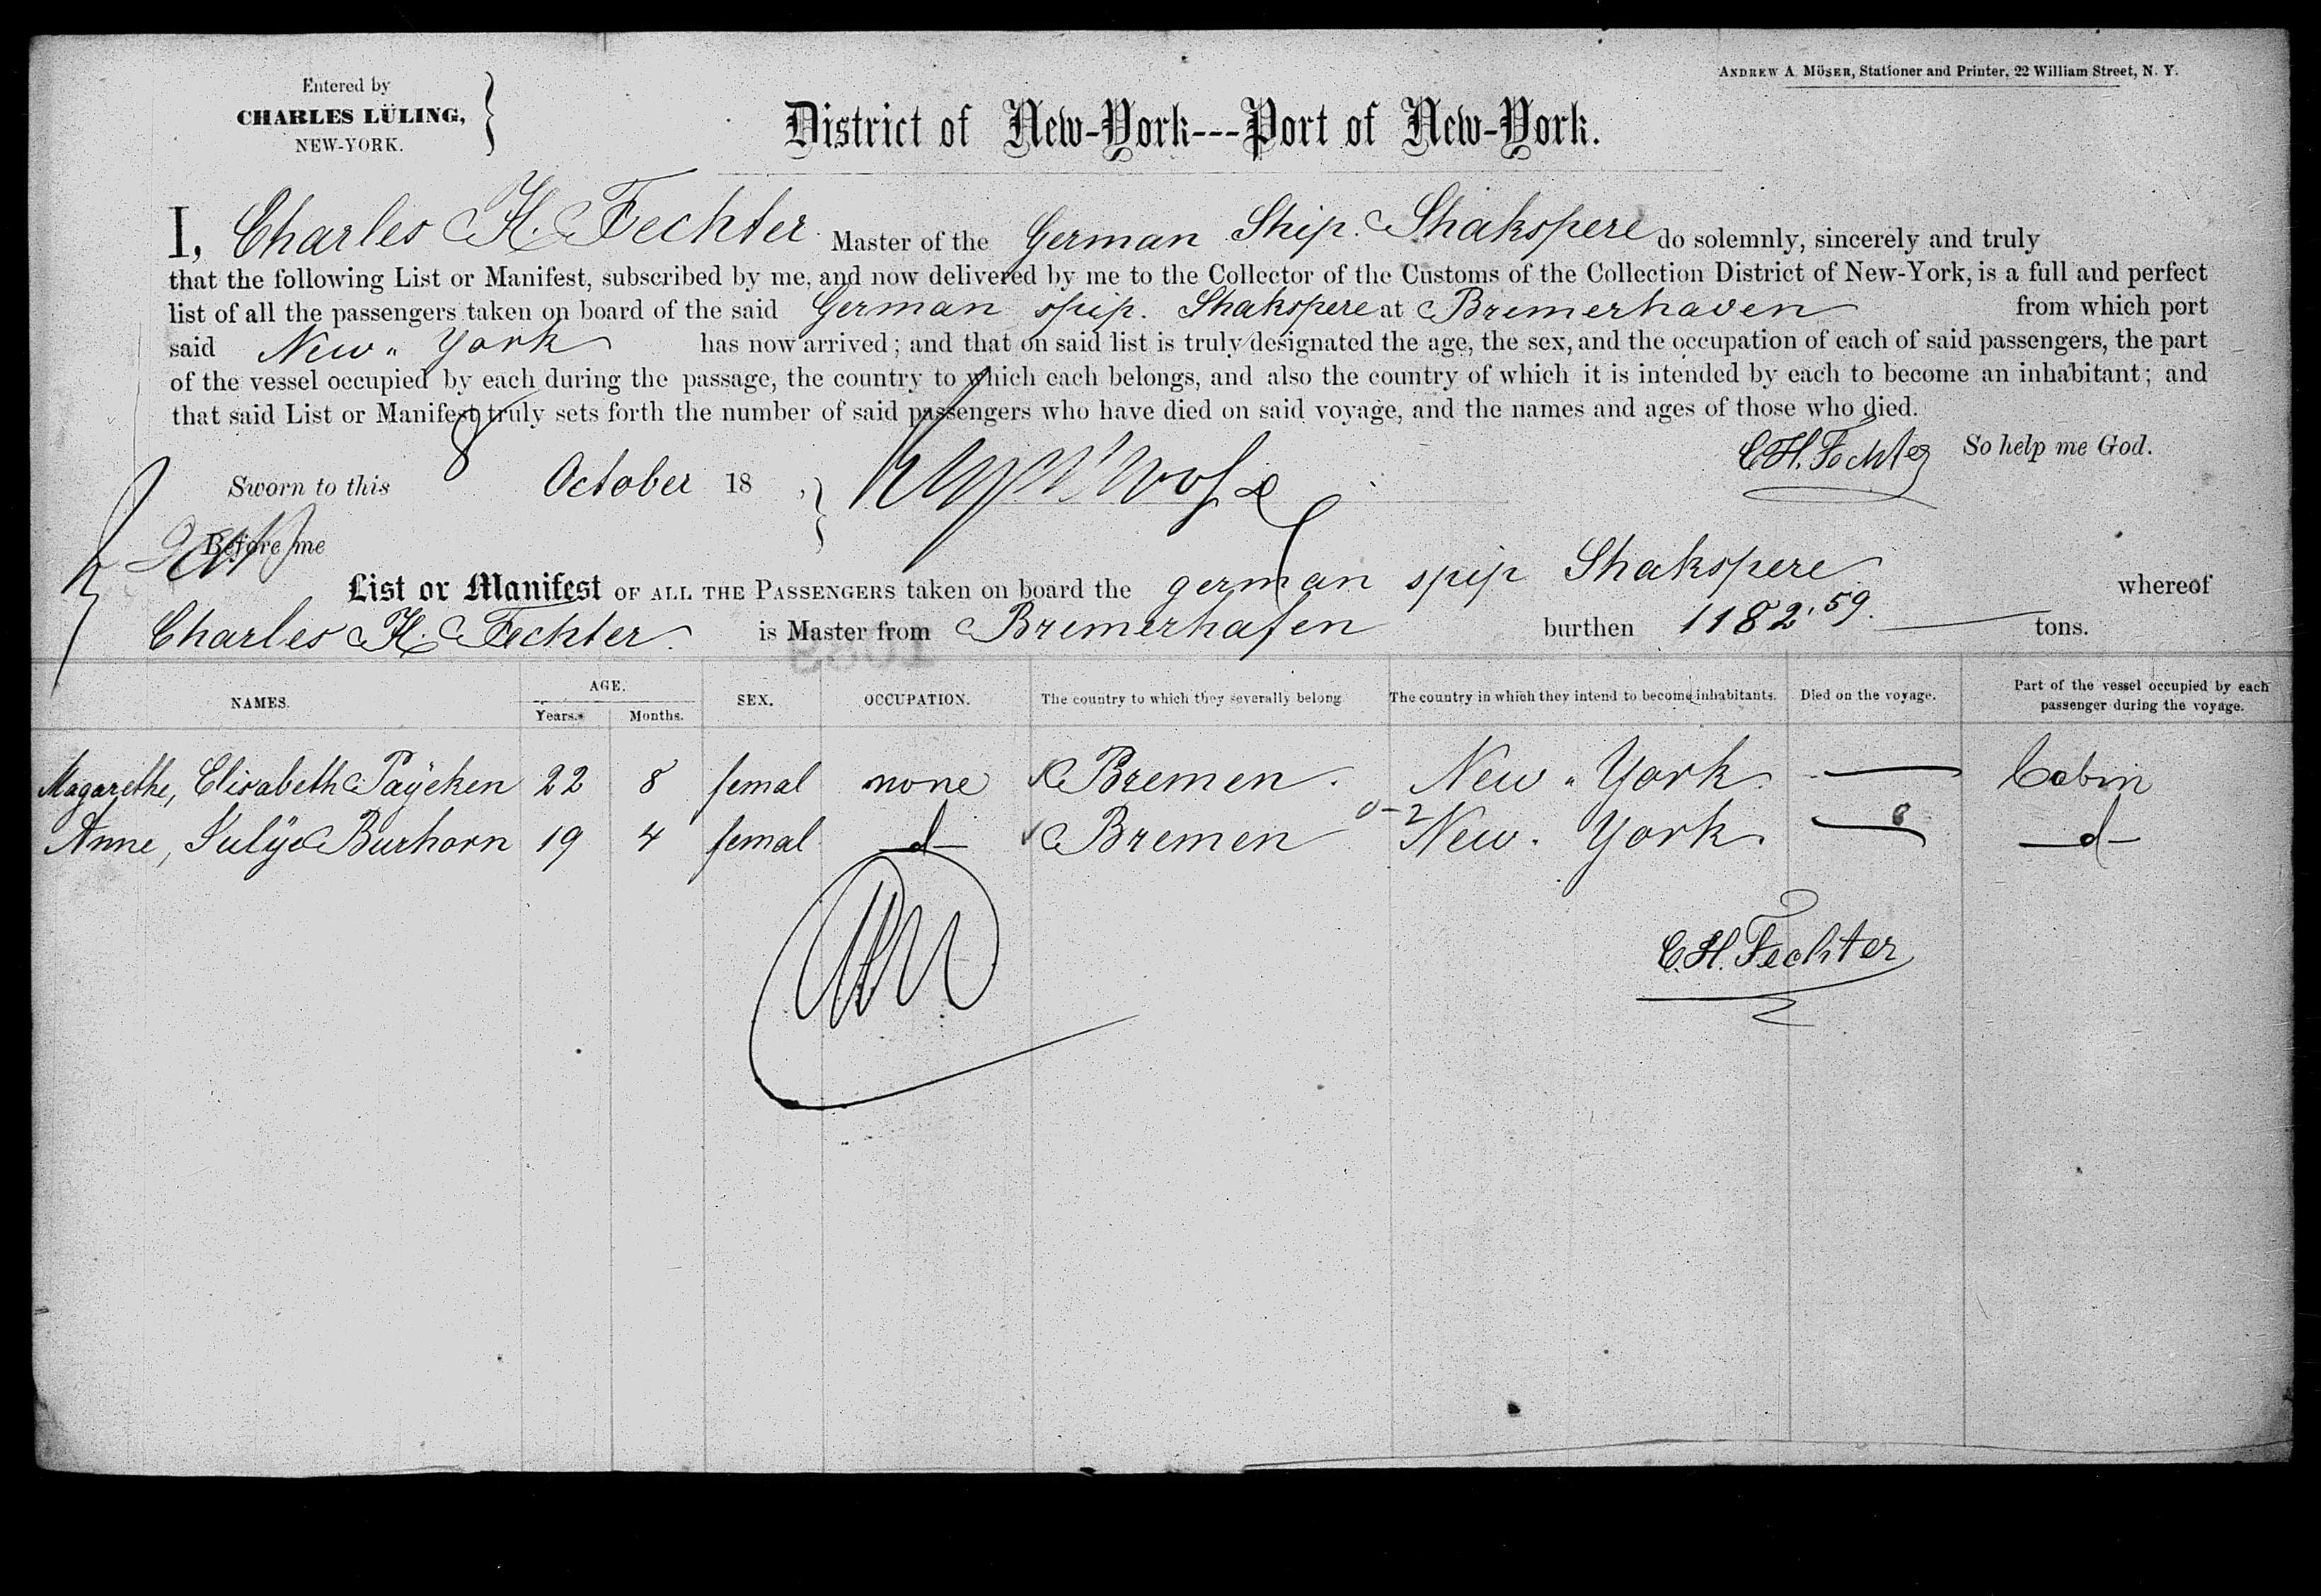 Entered by
CHARLES LÜLING,
NEW-YORK.
ANDREW A. MÖSER, Stationer and Printer, 22 William Street, N. Y.
District of New-York---Port of New-York.
I, Charles H. Fechter Master of the German Ship. Shakspere do solemnly, sincerely and truly
that the following List or Manifest, subscribed by me, and now delivered by me to the Collector of the Customs of the Collection District of New-York, is a full and perfect
list of all the passengers taken on board of the said German spip. Shakspere at Bremerhaven from which port
said New " York has now arrived; and that on said list is truly designated the age, the sex, and the occupation of each of said passengers, the part
of the vessel occupied by each during the passage, the country to which each belongs, and also the country of which it is intended by each to become an inhabitant; and
that said List or Manifest truly sets forth the number of said passengers who have died on said voyage, and the names and ages of those who died.
C.H. Fechter So help me God.
Sworn to this 8 October 18 ,
Before me
List or Manifest OF ALL THE PASSENGERS taken on board the german spip Shakspere whereof
Charles H. Fechter. is Master from Bremerhafen burthen 1182,59. tons.
NAMES. AGE. SEX. OCCUPATION. The country to which they severally belong The country in which they intend to become inhabitants. Died on the voyage. Part of the vessel occupied by each passenger during the voyage.
Years. Months.
Magarethe, Elisabeth Payeken 22 8 femal none Bremen. New " York. — Cabin
Anne, Julye Burhorn 19 4 femal d— Bremen New. York. — d—
C.H. Fechter